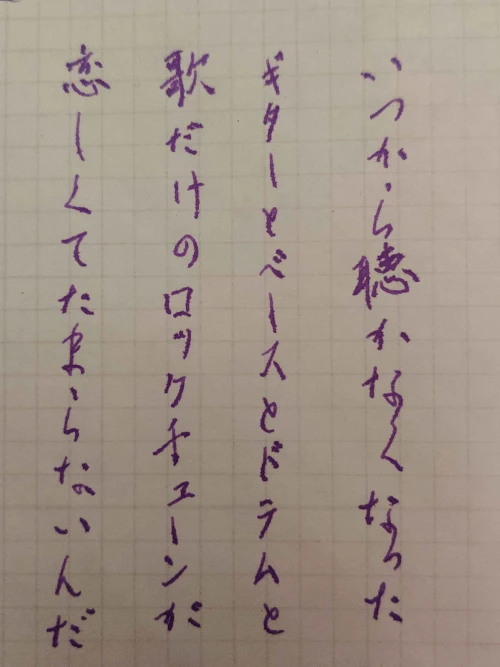 いつから聴かなくなった
ギターとベースとドラムと
歌だけのロックチューンが
恋しくてたまらないんだ